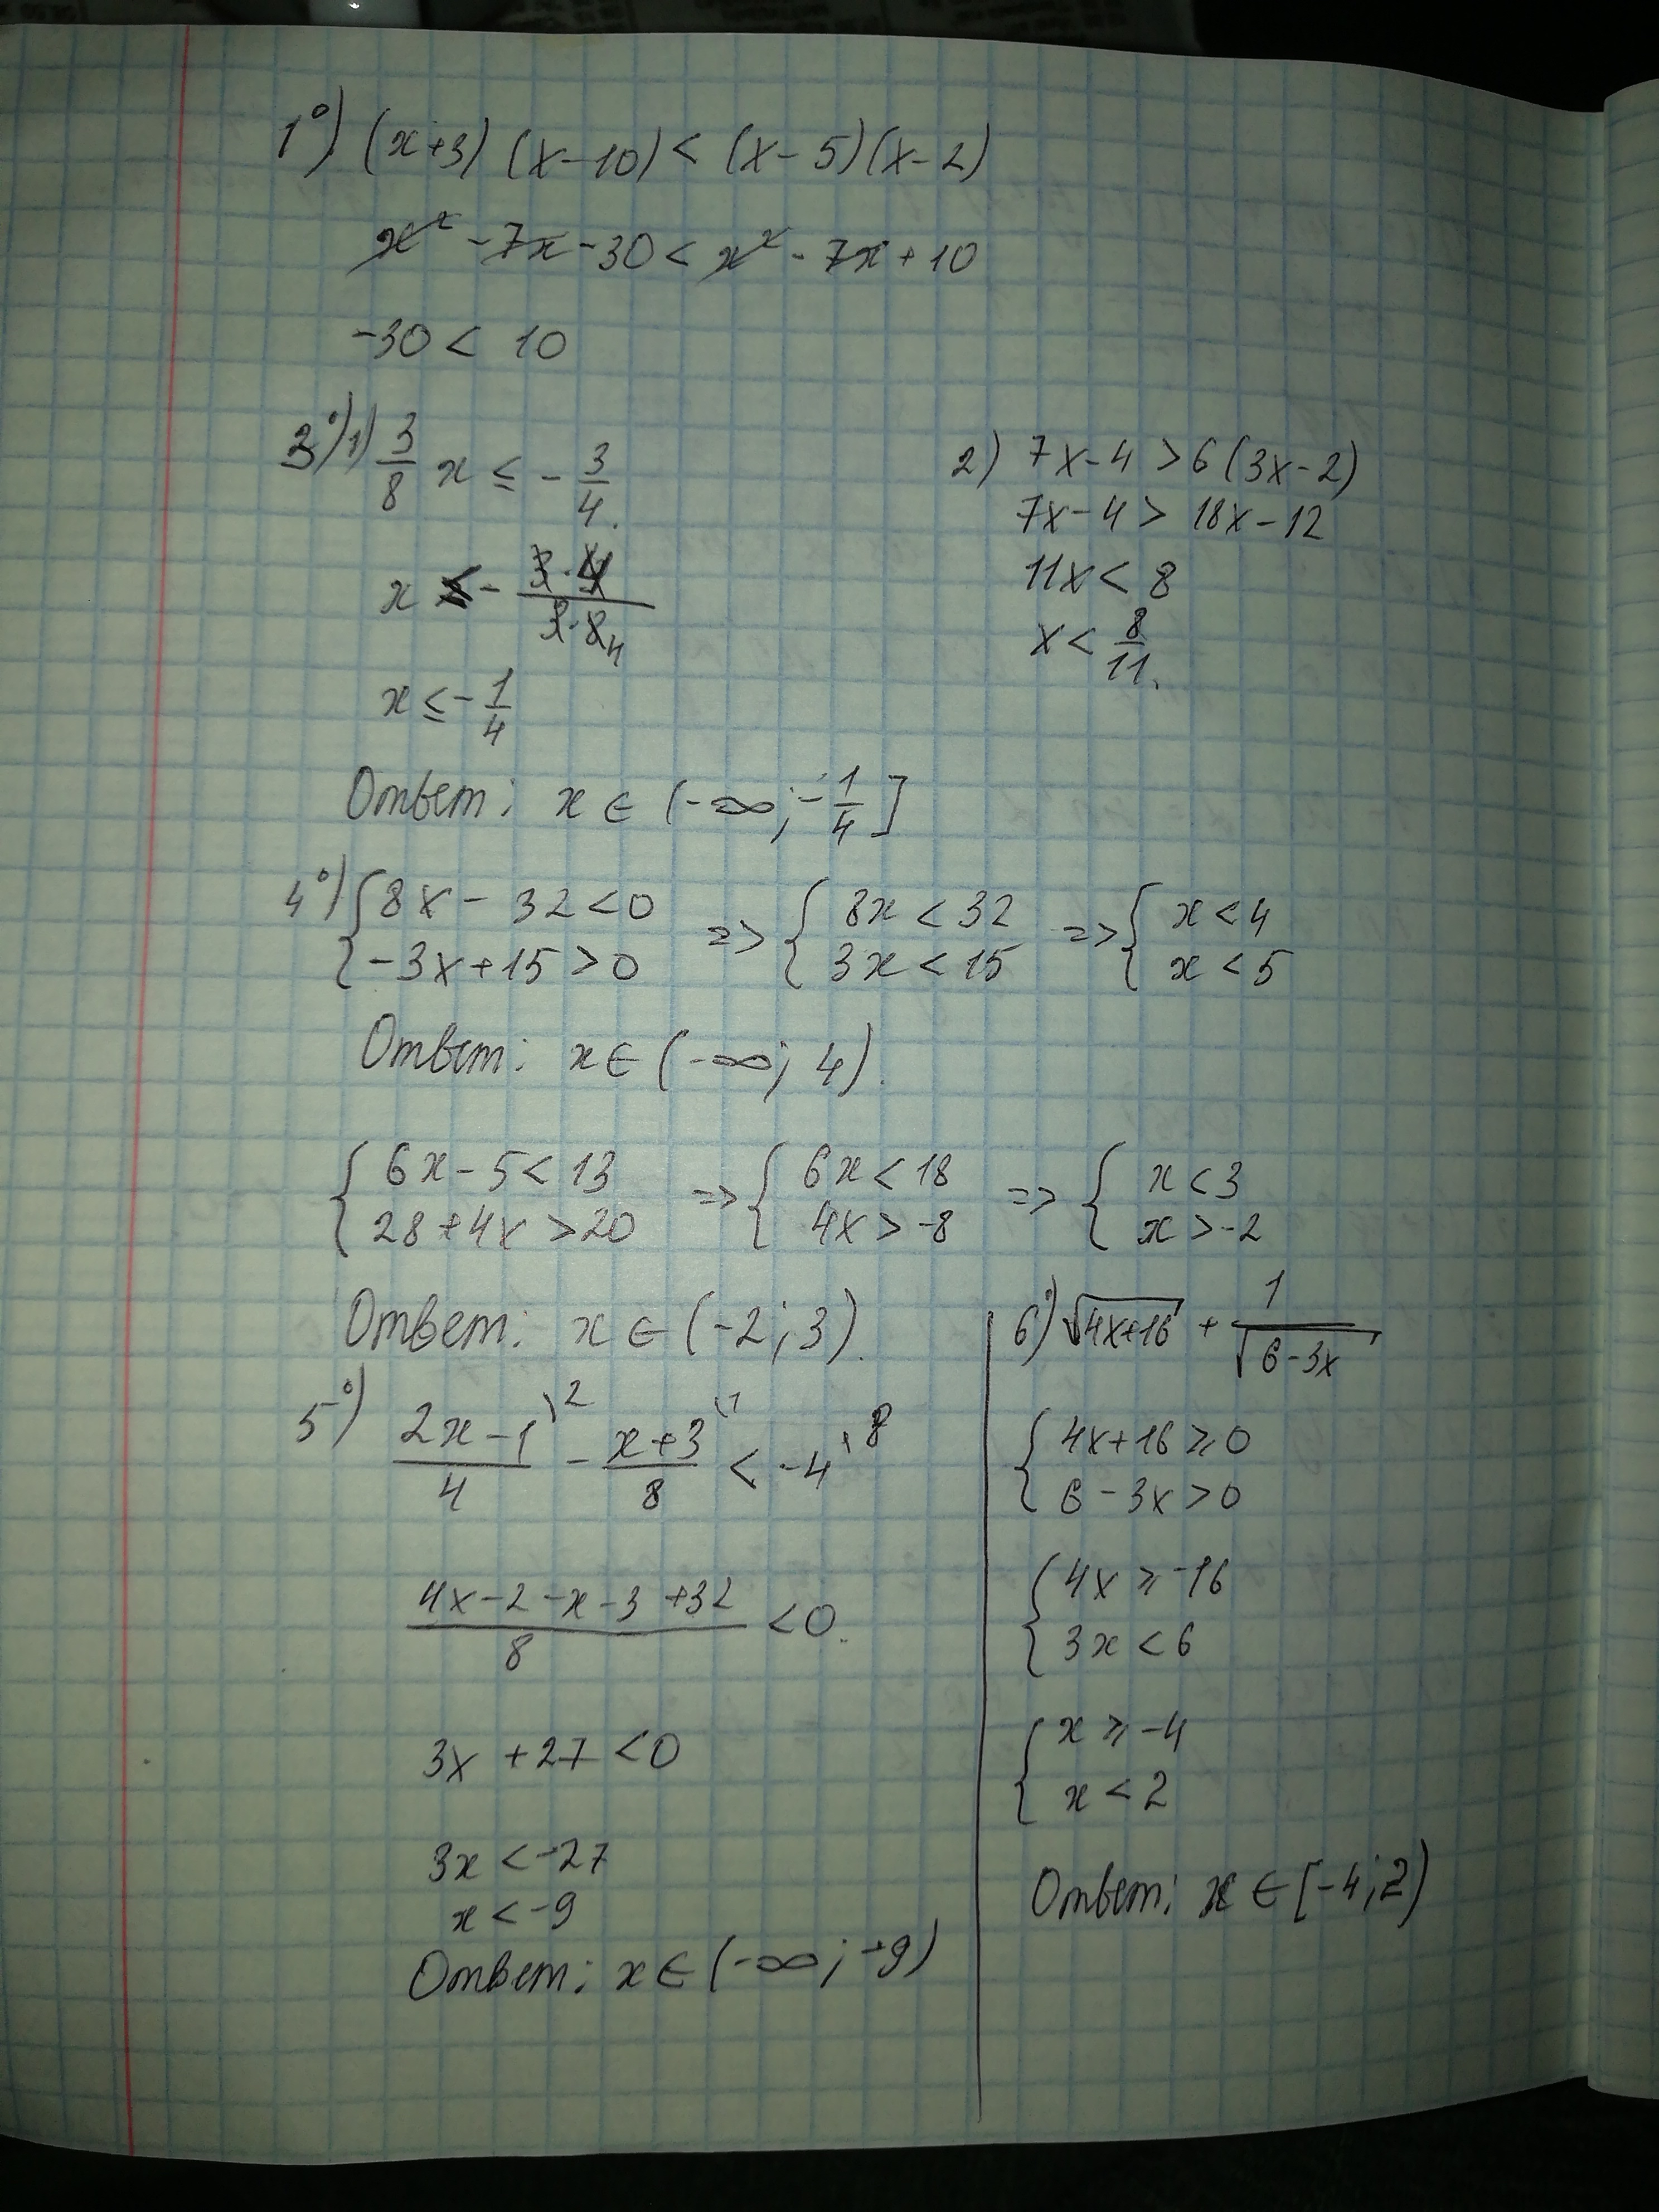 1°) (x+3) (x-10) < (x-5)(x-2)
x² - 7x - 30 < x² - 7x + 10
-30 < 10
3°) 1) 3/8 x ≤ - 3/4.
x ≤ - 3·4/3·8 4
x ≤ - 1/4
Ответ: x ∈ (-∞; -1/4]
2) 7x-4 > 6(3x-2)
7x-4 > 18x-12
11x < 8
x < 8/11.
4°) { 8x - 32 < 0 => { 8x < 32 => { x < 4
-3x+15 > 0 3x < 15 x < 5
Ответ: x ∈ (-∞; 4).
{ 6x - 5 < 13 => { 6x < 18 => { x < 3
28 + 4x > 20 4x > -8 x > -2
Ответ: x ∈ (-2; 3).
5°) 2x-1\2/4 - x+3\1/8 < -4\8
4x-2-x-3+32/8 < 0.
3x + 27 < 0
3x < -27
x < -9
Ответ: x ∈ (-∞; -9)
6°) √4x+16 + 1/√6-3x
{ 4x+16 ≥ 0
6 - 3x > 0
{ 4x ≥ -16
3x < 6
{ x ≥ -4
x < 2
Ответ: x ∈ [-4; 2)